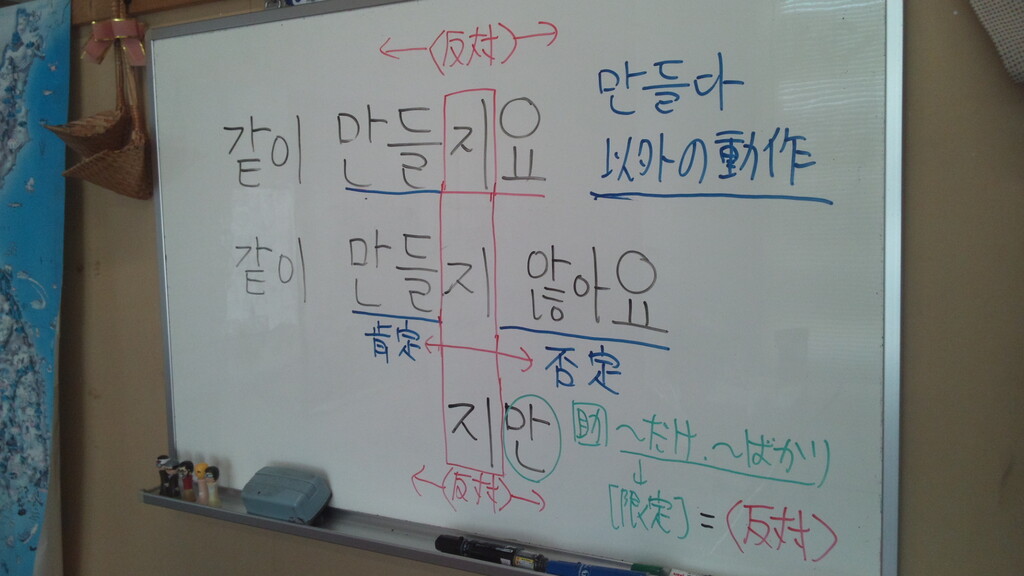 ←〈反対〉→
같이 만들지요
만들다
以外の動作
같이 만들지 않아요
肯定 ↔ 否定
지만
助 〜だけ、〜ばかり
↓
←〈反対〉→
[限定] = 〈反対〉